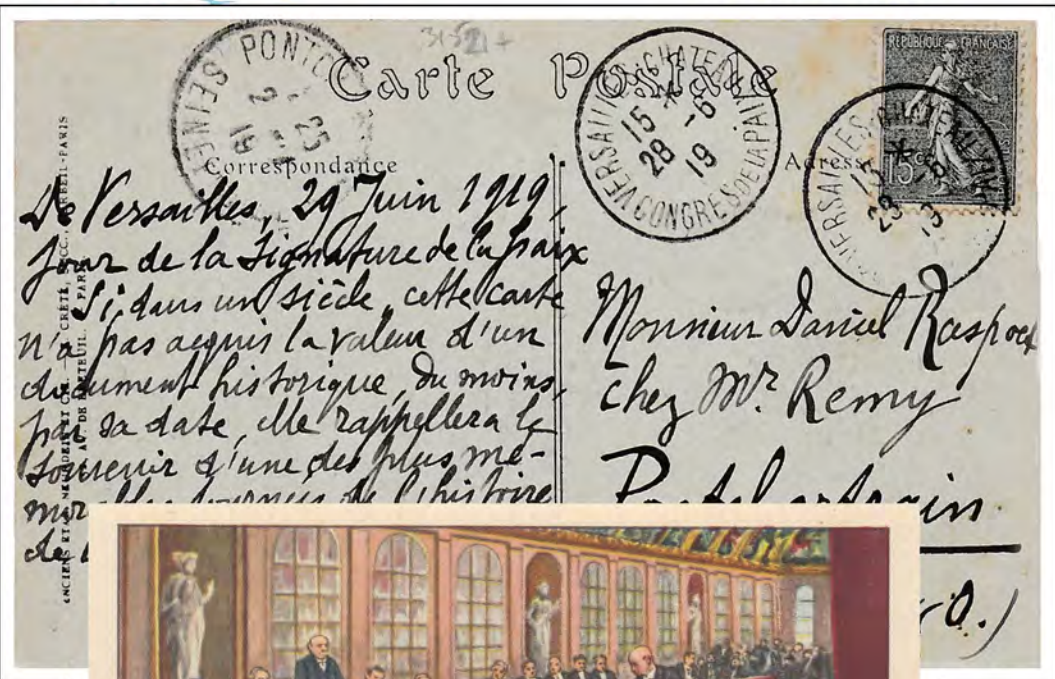 3152+
Carte Postale
PONTC
SEINE ET
25
2
19
VERSAILLES-CHATEAU
15 * 28 -6 19
CONGRES DE LA PAIX
REPUBLIQUE FRANÇAISE
15c
VERSAILLES-CHATEAU
Correspondance
Adresse
De Versailles, 29 Juin 1919,
Jour de la Signature de la paix
Si, dans un siècle, cette carte
n'a pas acquis la valeur d'un
document historique, du moins,
par sa date, elle rappellera le
souvenir d'une des plus mé-
morables journées de l'histoire
de
Monsieur Daniel Raspoet
chez Mr. Remy
Pontchartrain
O.)